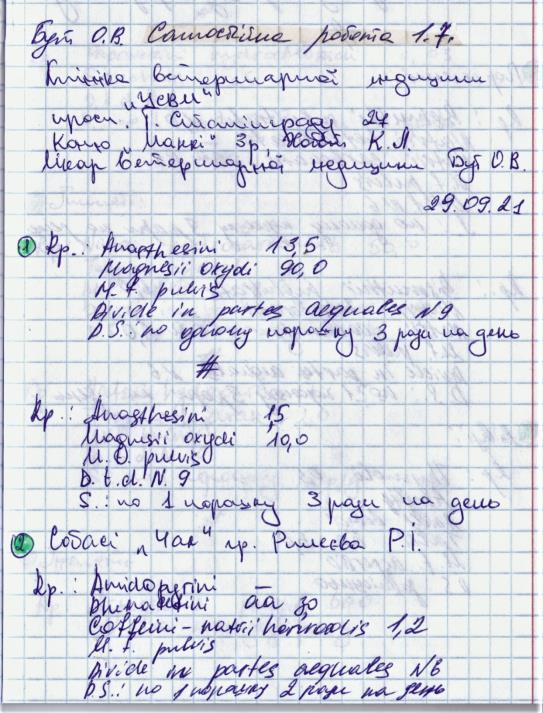 Бут О.В. Самостійна робота 1.7.
Клініка ветеринарної медицини
"ЦСВМ"
просп. Г. Сталінграду 27
Коню "Манкі" 3р, К.Л.
Лікар ветеринарної медицини Бут О.В.
29.09.21
1 Rp.: Anaesthesini 13,5
Magnesii oxydi 90,0
M. f. pulvis
Divide in partes aequales N9
D.S.: по одному порошку 3 рази на день
#
Rp.: Anaesthesini 1,5
Magnesii oxydi 10,0
M. f. pulvis
D. t. d. N. 9
S.: по 1 порошку 3 рази на день
2 Собаці "Чак" гр. Рилєєва Р.І.
Rp.: Amidopyrini
Phenacetini āā 3,0
Coffeini-natrii benzoatis 1,2
M. f. pulvis
Divide in partes aequales N6
D.S.: по 1 порошку 2 рази на день